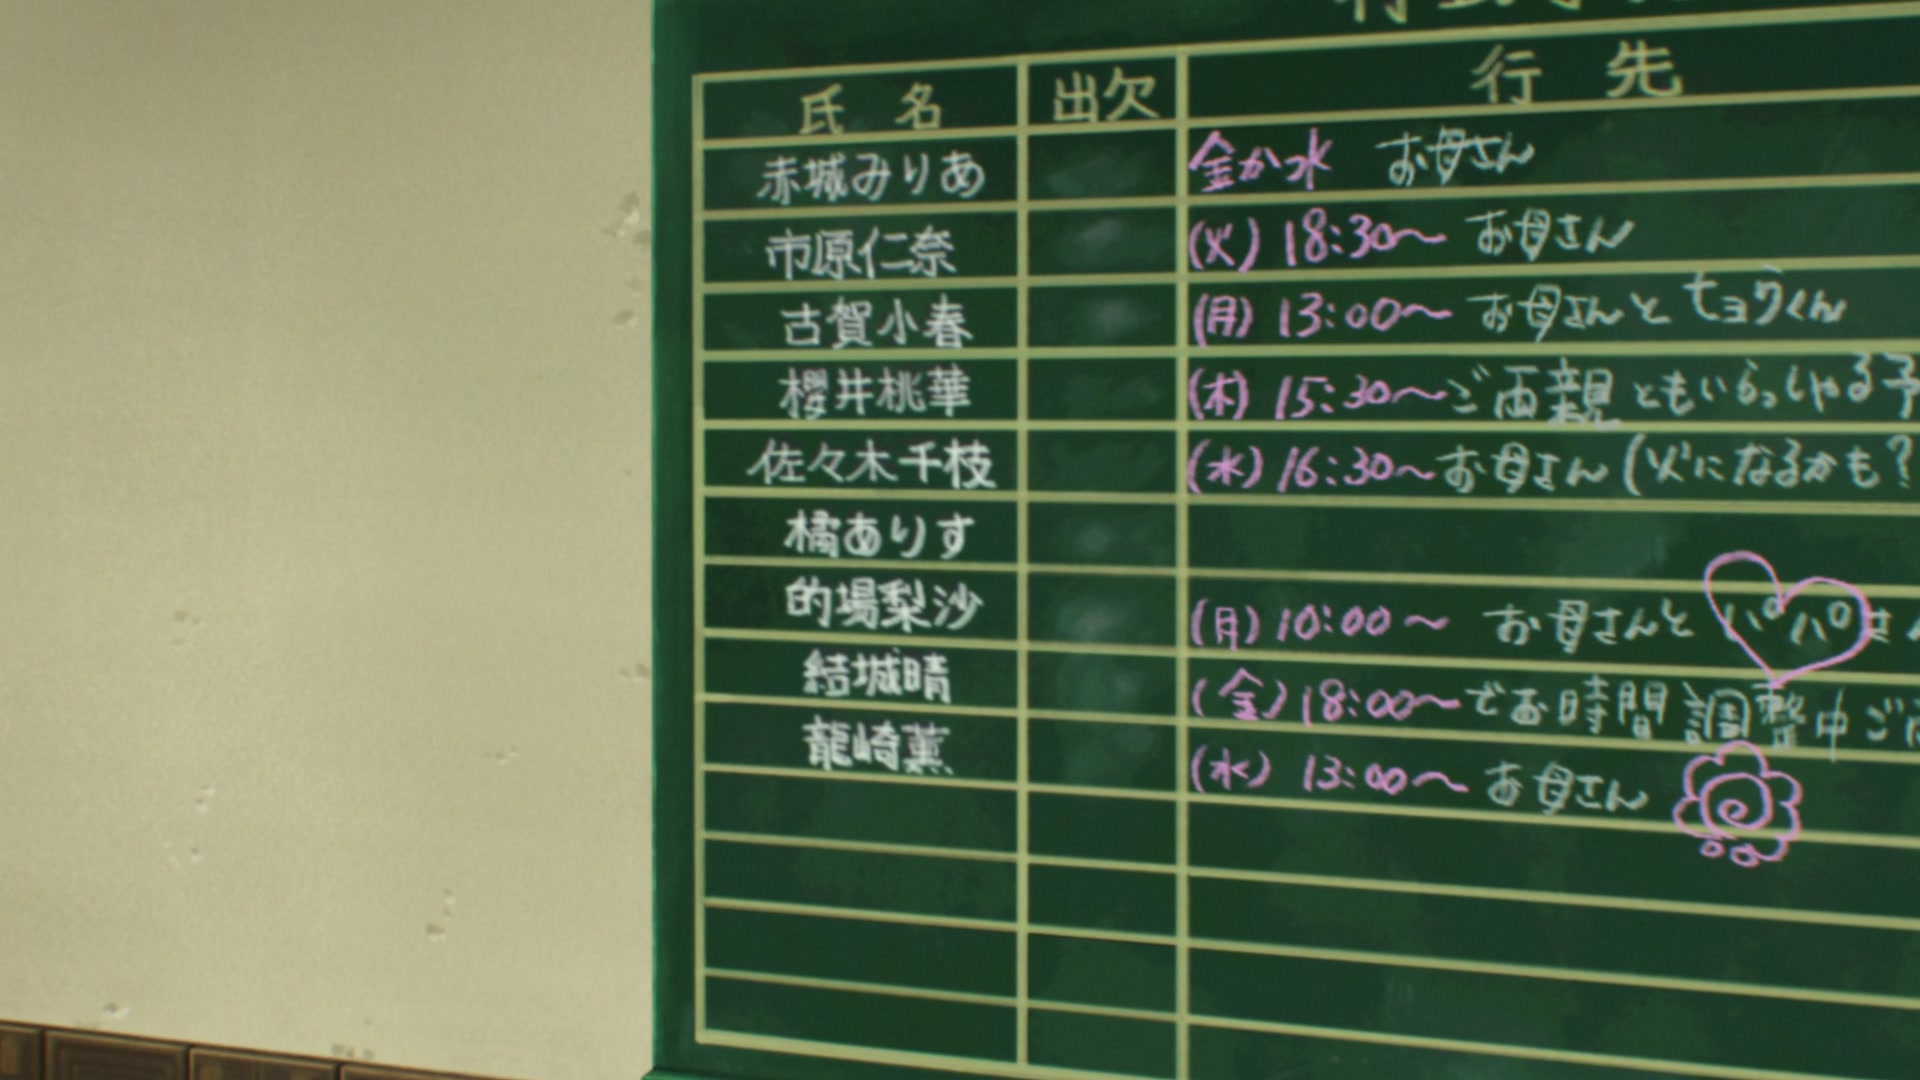 氏名 出欠 行先
赤城みりあ 金か水 お母さん
市原仁奈 (火) 18:30～ お母さん
古賀小春 (月) 13:00～ お母さんとヒョウくん
櫻井桃華 (木) 15:30～ご両親ともいらっしゃる予
佐々木千枝 (水) 16:30～お母さん (火になるかも?
橘ありす
的場梨沙 (月) 10:00～ お母さんと パパさん
結城晴 (金) 18:00～でお時間調整中ご
龍崎薫 (水) 13:00～ お母さん